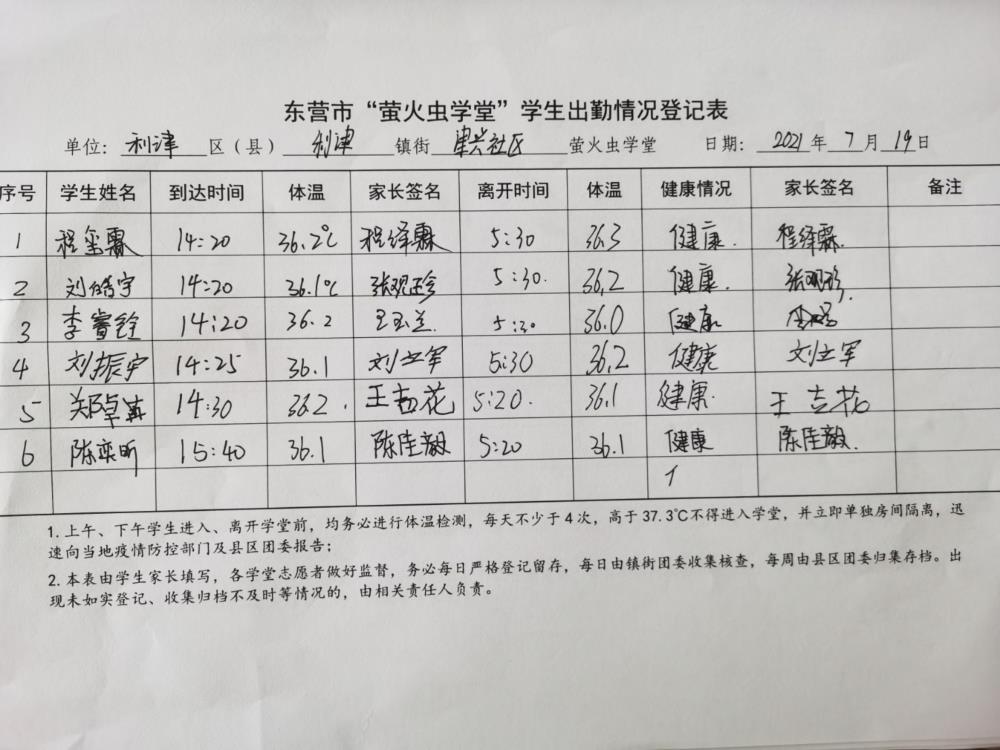 东营市“萤火虫学堂”学生出勤情况登记表
单位：利津区（县）利津镇街津兴社区萤火虫学堂 日期：2021年7月19日
序号 学生姓名 到达时间 体温 家长签名 离开时间 体温 健康情况 家长签名 备注
1 程玺霖 14:20 36.2℃ 程绎霖 5:30 36.3 健康. 程绎霖.
2 刘皓宇 14:20 36.1℃ 张观珍 5:30. 36.2 健康. 张观珍.
3 李睿铨 14:20 36.2 王玉兰 5:30 36.0 健康
4 刘振宇 14:25 36.1 刘立军 5:30 36.2 健康 刘立军
5 郑卓 14:30 36.2. 王吉花 5:20. 36.1 健康. 王吉花
6 陈奕昕 15:40 36.1 陈佳毅 5:20 36.1 健康 陈佳毅.
1.上午、下午学生进入、离开学堂前，均务必进行体温检测，每天不少于4次，高于37.3℃不得进入学堂，并立即单独房间隔离，迅
速向当地疫情防控部门及县区团委报告；
2.本表由学生家长填写，各学堂志愿者做好监督，务必每日严格登记留存，每日由镇街团委收集核查，每周由县区团委归集存档。出
现未如实登记、收集归档不及时等情况的，由相关责任人负责。